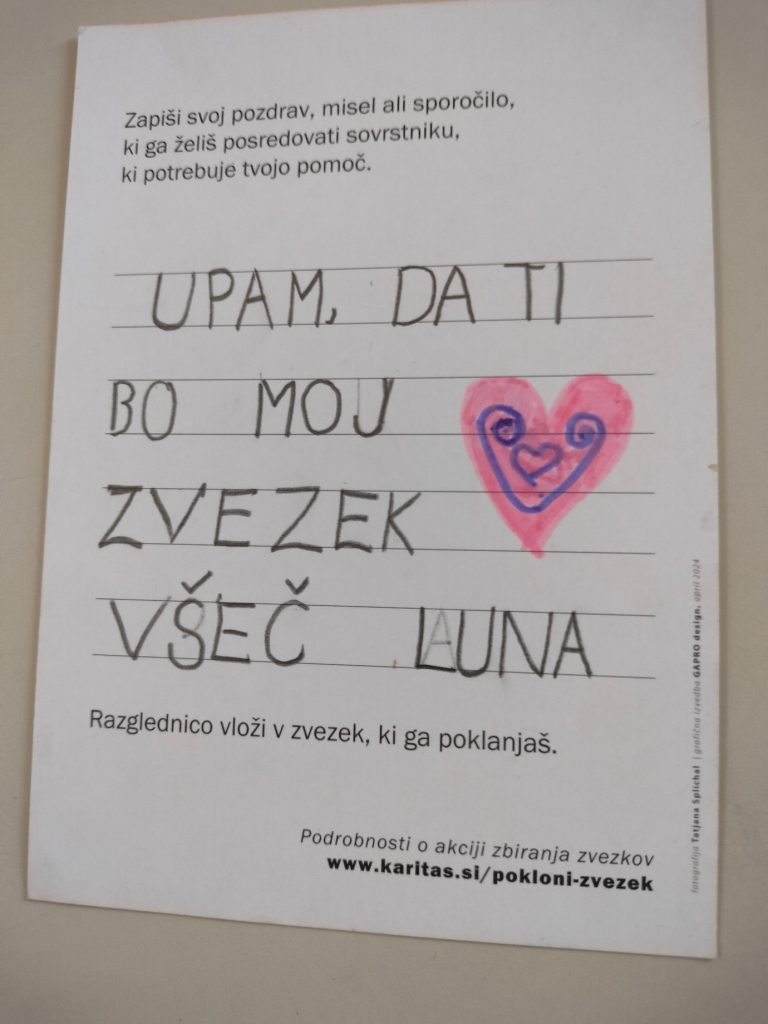 Zapiši svoj pozdrav, misel ali sporočilo,
ki ga želiš posredovati sovrstniku,
ki potrebuje tvojo pomoč.
UPAM, DA TI
BO MOJ
ZVEZEK
VŠEČ LUNA
Razglednico vloži v zvezek, ki ga poklanjaš.
Podrobnosti o akciji zbiranja zvezkov
www.karitas.si/pokloni-zvezek
fotografija Tetjana Splichal | grafična izvedba GAPRO design, april 2024